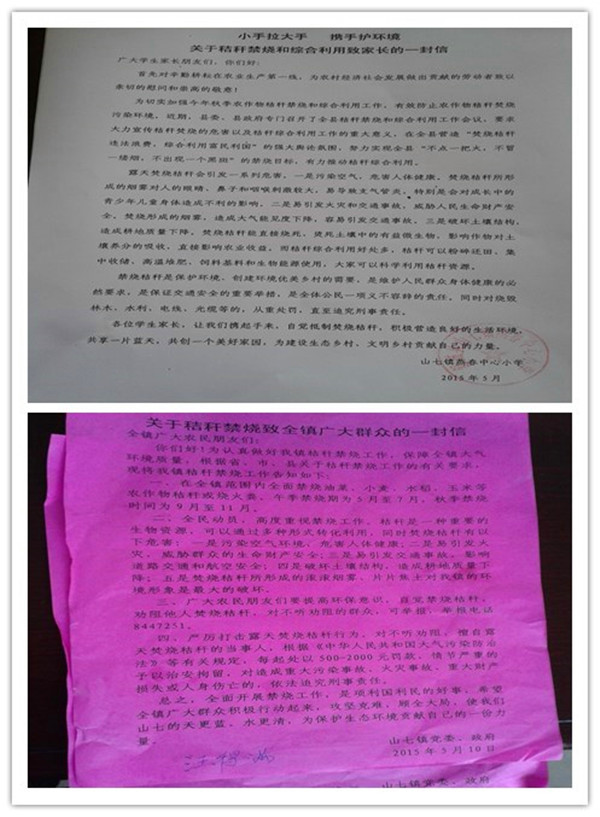 小手拉大手　携手护环境
关于秸秆禁烧和综合利用致家长的一封信
广大学生家长朋友们，你们好：
首先对辛勤耕耘在农业生产第一线，为农村经济社会发展做出贡献的劳动者致以
亲切的慰问和崇高的敬意！
为切实加强今年秋季农作物秸秆禁烧和综合利用工作，有效防止农作物秸秆焚烧
污染环境，近期，县委、县政府专门召开了全县秸秆禁烧和综合利用工作会议，要求
大力宣传秸秆焚烧的危害以及秸秆综合利用工作的重大意义，在全县营造“焚烧秸秆
违法浪费，综合利用富民利国”的强大舆论氛围，努力实现全县“不点一把火，不冒
一缕烟，不出现一个黑斑”的禁烧目标，有力推动秸秆综合利用。
露天焚烧秸秆会引发一系列危害。一是污染空气，危害人体健康。焚烧秸秆所形
成的烟雾对人的眼睛、鼻子和咽喉刺激较大，易导致支气管炎，特别是会对成长中的
青少年儿童身体造成不利的影响。二是易引发火灾和交通事故，威胁人民生命财产安
全。焚烧形成的烟雾，造成大气能见度下降，容易引发交通事故。三是破坏土壤结构，
造成耕地质量下降。焚烧秸秆能直接烧死、烫死土壤中的有益微生物，影响作物对土
壤养分的吸收，直接影响农业收益。而秸秆综合利用好处多，秸秆可以粉碎还田、集
中收储、高温堆肥、饲料基料和生物能源使用，大家可以科学利用秸秆资源。
禁烧秸秆是保护环境、创建环境优美乡村的需要，是维护人民群众身体健康的必
然要求，是保证交通安全的重要举措，是全体公民一项义不容辞的责任。同时对烧毁
林木、水利、电线、光缆等的，从重处罚，直至追究刑事责任。
各位学生家长，让我们携起手来，自觉抵制焚烧秸秆，积极营造良好的生活环境，
共享一片蓝天，共创一个美好家园，为建设生态乡村、文明乡村贡献自己的力量。
山七镇燕春中心小学
2015年5月
关于秸秆禁烧致全镇广大群众的一封信
全镇广大农民朋友们：
你们好！为认真做好我镇秸秆禁烧工作，保障全镇大气
环境质量，根据省、市、县关于秸秆禁烧工作的有关要求，
现将我镇秸秆禁烧工作告知如下：
一、在全镇范围内全面禁烧油菜、小麦、水稻、玉米等
农作物秸秆或烧火粪，午季禁烧期为5月至7月，秋季禁烧
时间为9月至11月。
二、全民动员，高度重视禁烧工作。秸秆是一种重要的
生物资源，可以通过多种形式转化利用，同时焚烧秸秆有以
下危害：一是污染空气环境，危害人体健康；二是易引发火
灾，威胁群众的生命财产安全；三是易引发交通事故，影响
道路交通和航空安全；四是破坏土壤结构，造成耕地质量下
降；五是焚烧秸秆所形成的滚滚烟雾、片片焦土对我镇的环
境形象是最大的破坏。
三、广大农民朋友们要提高环保意识，自觉禁烧秸秆，
劝阻他人焚烧秸秆，对不听劝阻的群众，可举报，举报电话
8447251。
四、严厉打击露天焚烧秸秆行为，对不听劝阻，擅自露
天焚烧秸秆的当事人，根据《中华人民共和国大气污染防治
法》等有关规定，每起处以500-2000元罚款，情节严重的
予以治安拘留，对造成重大污染事故、火灾事故、重大财产
损失或人身伤亡的，依法追究刑事责任。
总之，全面开展禁烧工作，是项利国利民的好事，希望
全镇广大群众积极行动起来，攻坚克难，顾全大局，使我们
山七的天更蓝、水更清，为保护生态环境贡献自己的一份力
量。
山七镇党委、政府
2015年5月10日
山七镇党委、政府